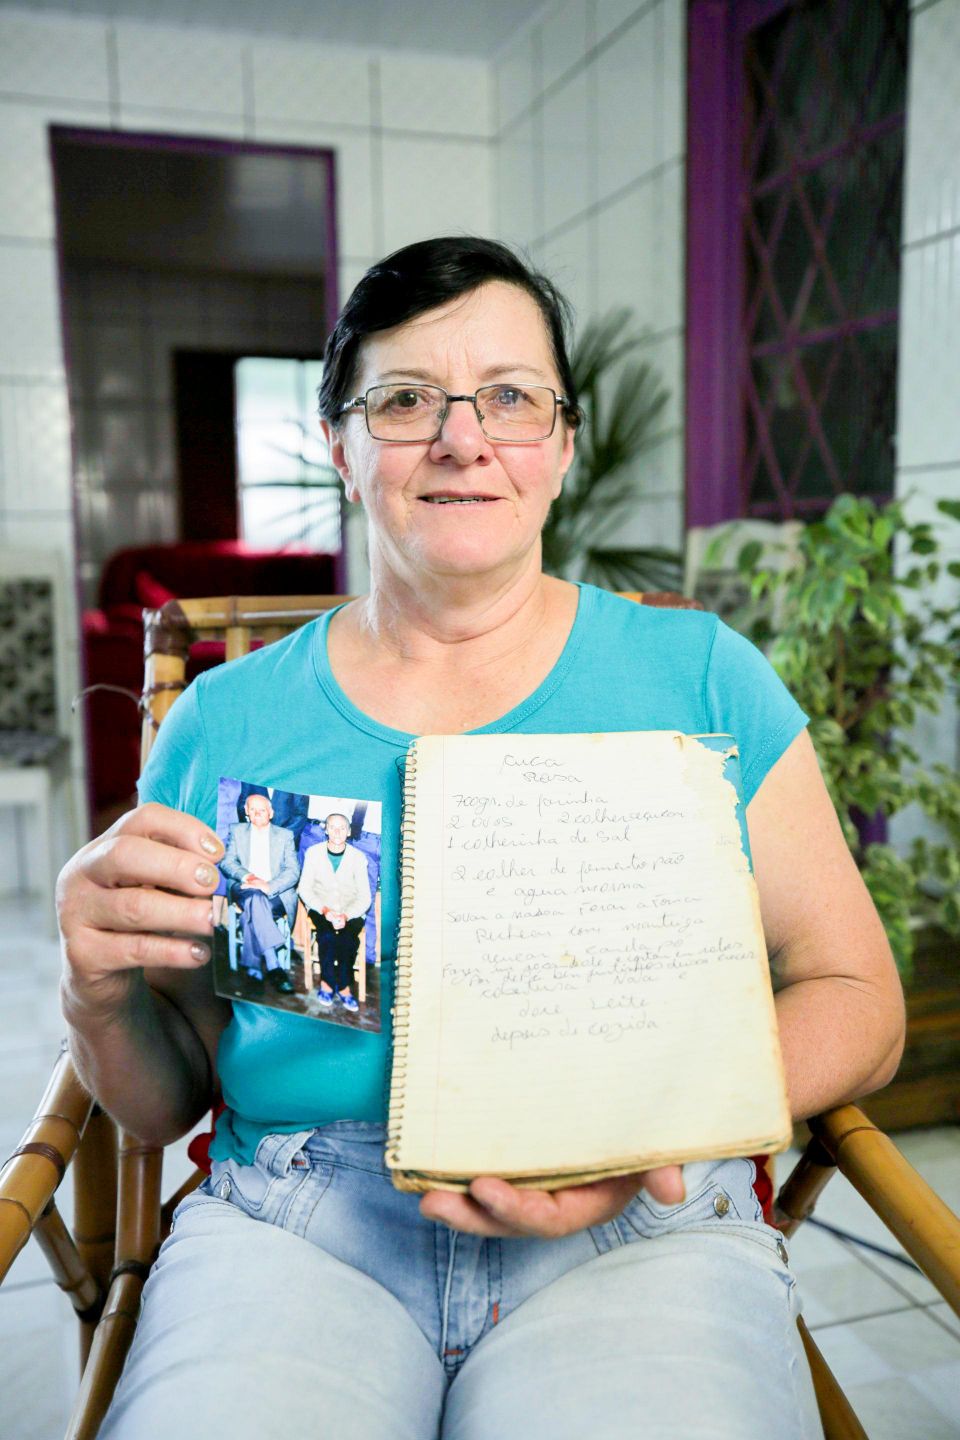 Cuca
Rosa
700gr. de farinha
2 ovos 2 colher açucar
1 colherinha de sal
2 colher de fermento pão
e agua morna
Sovar a massa
Rechear com manteiga
açucar e canela po
Fazer um rocambole e cortar em rodas
bem juntinhos deixa crescer
cobertura Nata e
doce Leite
depois de cozida